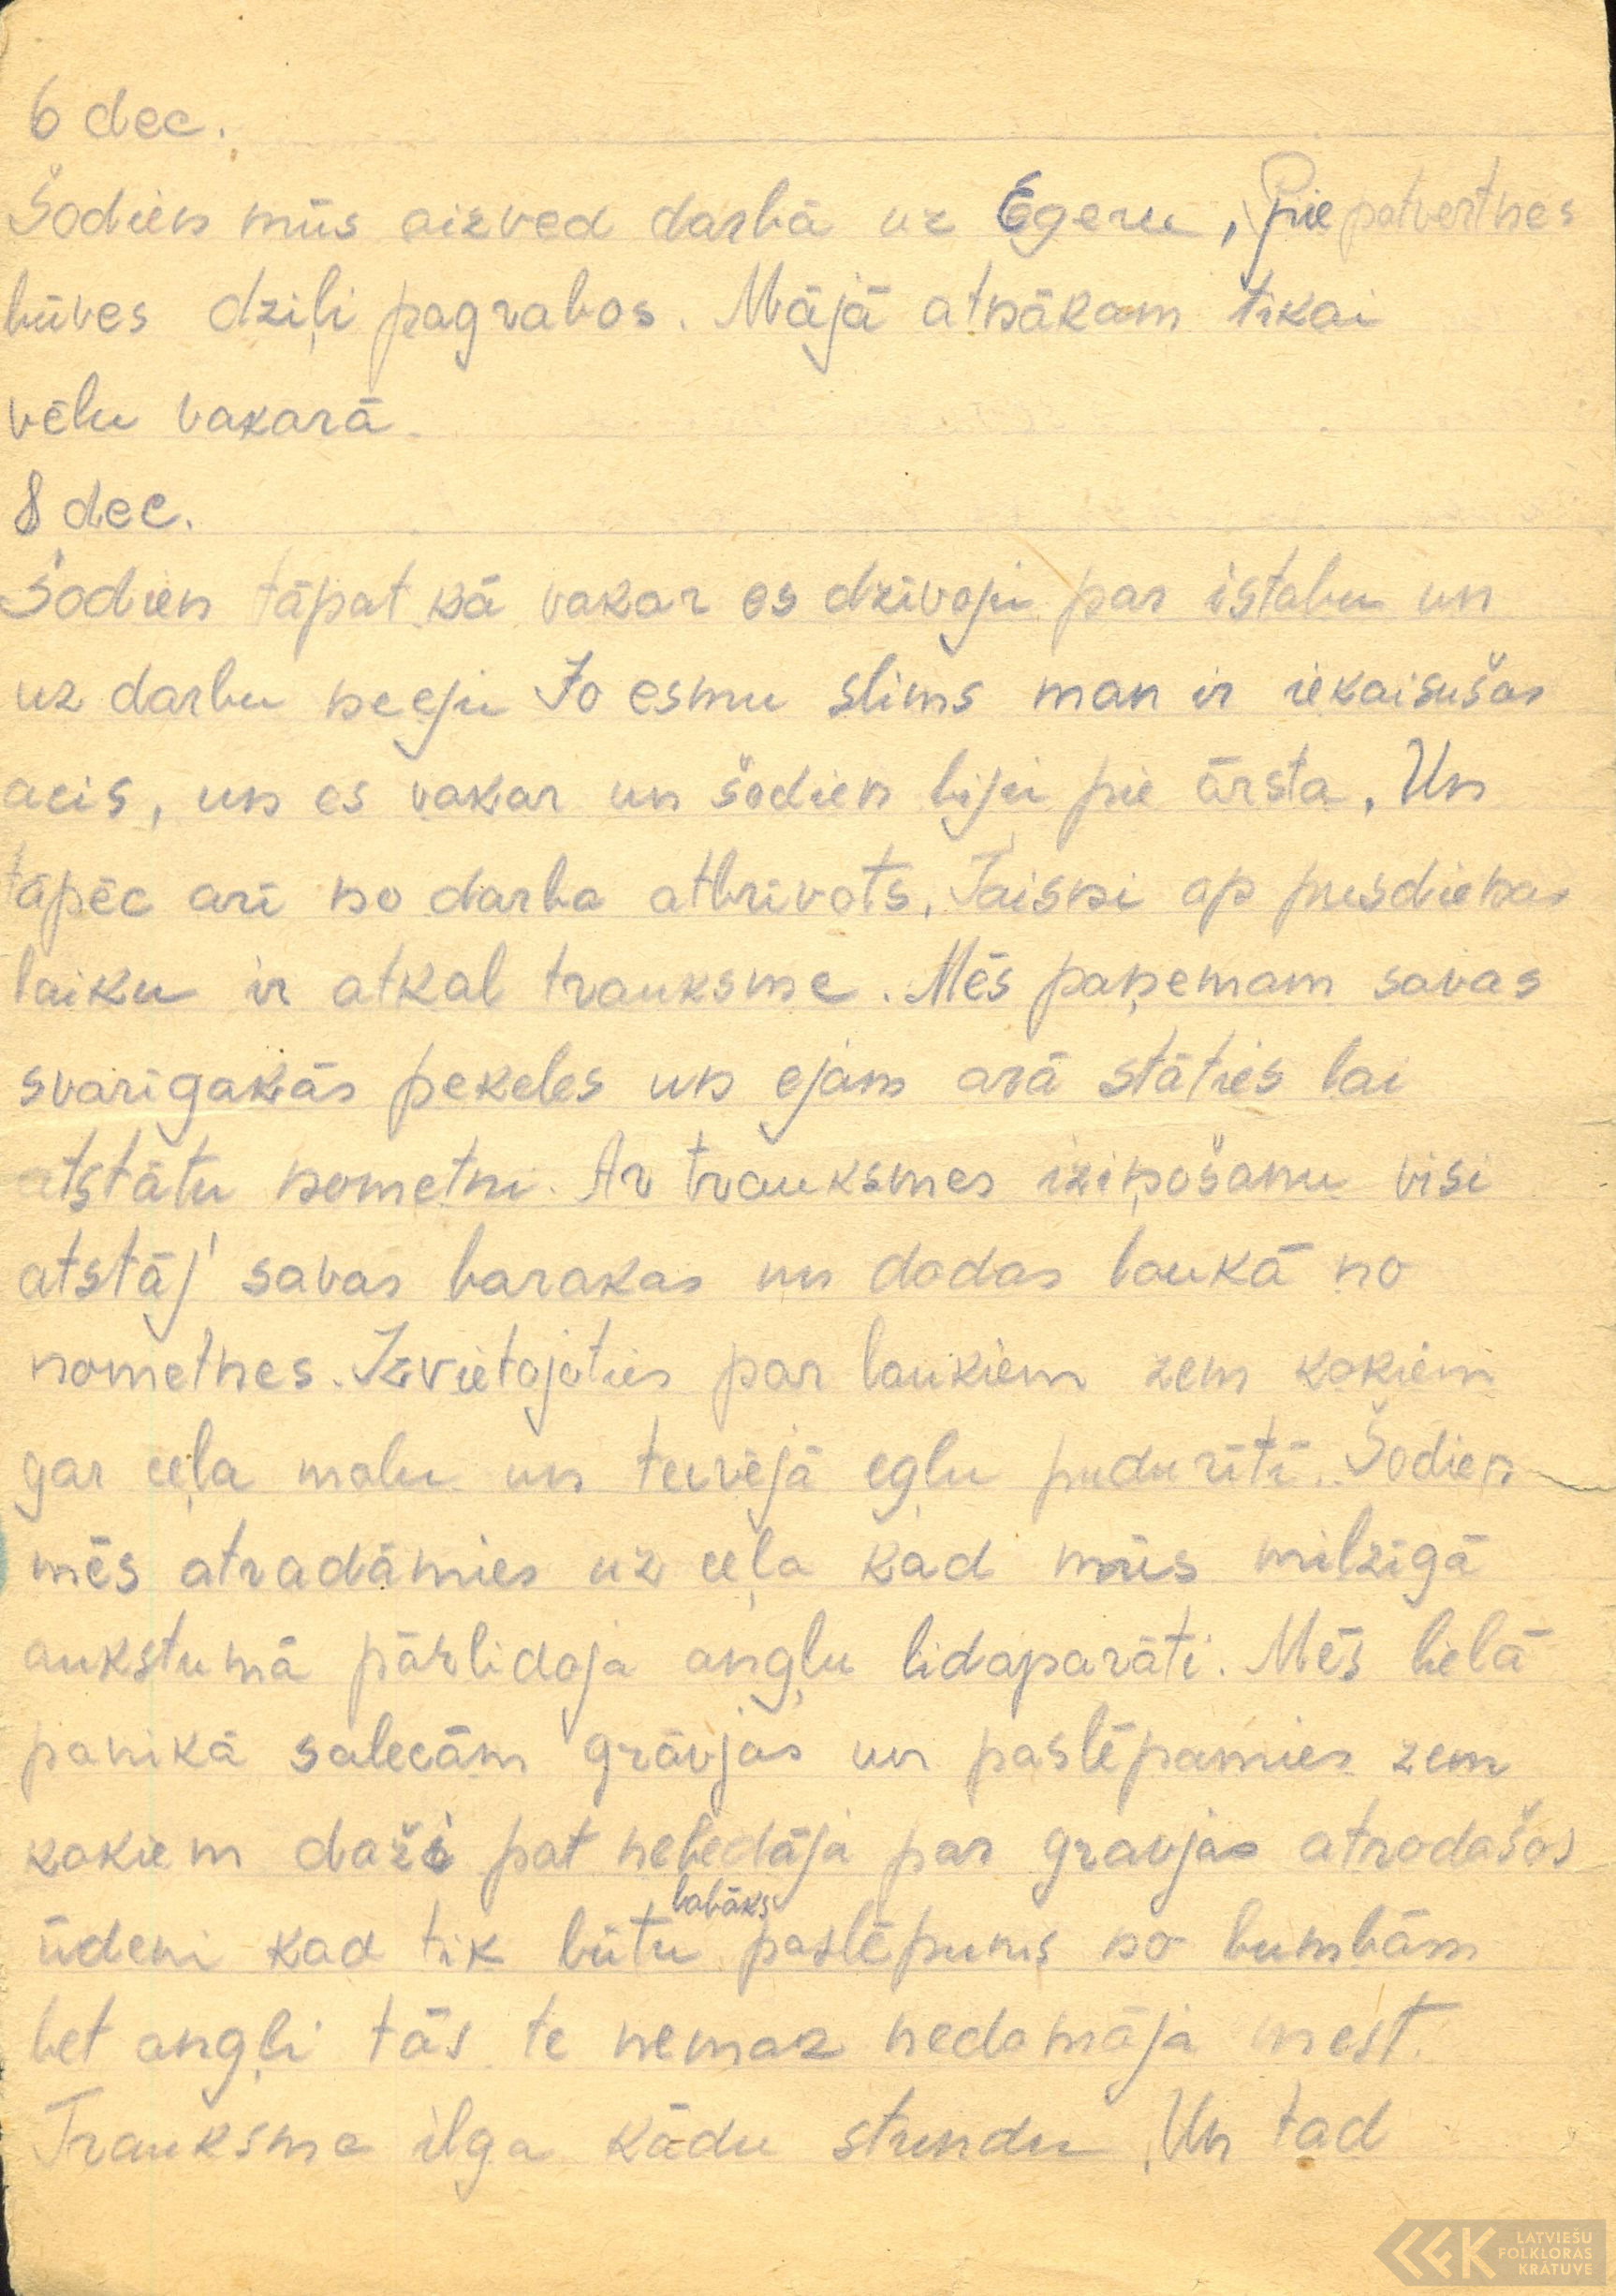 6 dec.
Šodien mūs aizved darbā uz Egeru, pie patvertnes
būves dziļi pagrabos. Mājā atnākam tikai
vēlu vakarā.
8 dec.
Šodien tāpat kā vakar es dzīvoju par istabu un
uz darbu neeju Jo esmu slims man ir iekaisušas
acis, un es vakar un šodien biju pie ārsta. Un
tāpēc arī no darba atbrīvots. Taisni ap pusdienas
laiku ir atkal trauksme. Mēs paņemam savas
svarīgakās pekeles un ejam arā stāties lai
atstātu nometni. Ar trauksmes iziņošanu visi
atstāj savas barakas un dodas laukā no
nometnes. Izvietojoties par laukiem zem kokiem
gar ceļa malu un tuvējā eglu pudurītī. Šodien
mēs atradāmies uz ceļa kad mūs milzīgā
aukstumā pārlidoja angļu lidaparāti. Mēs lielā
panikā salecām grāvjos un paslēpamies zem
kokiem daži pat nebedāja par gravjos atrodašos
ūdeni kad tik būtu labāks paslēpums no bumbām
bet angļi tās te nemaz nedomāja mest.
Trauksme ilga kādu stundu. Un tad
LATVIEŠU
FOLKLORAS
KRĀTUVE